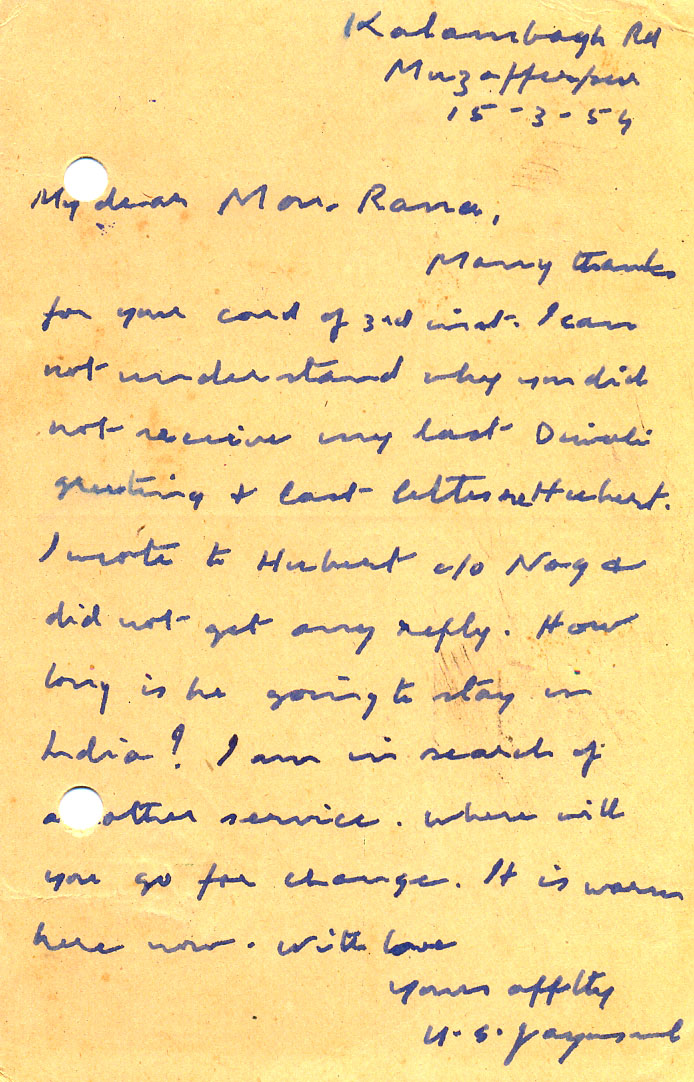 Kalambagh Rd
Muzafferpur
15-3-54
My dear Mon. Rana,
Many thanks
for your card of 3rd inst. I can
not understand why you did
not receive my last Diwali
greeting & last letter re Hubert.
I wrote to Hubert c/o Nag &
did not get any reply. How
long is he going to stay in
India? I am in search of
another service. Where will
you go for change. It is warm
here now. With love
Yours affctly